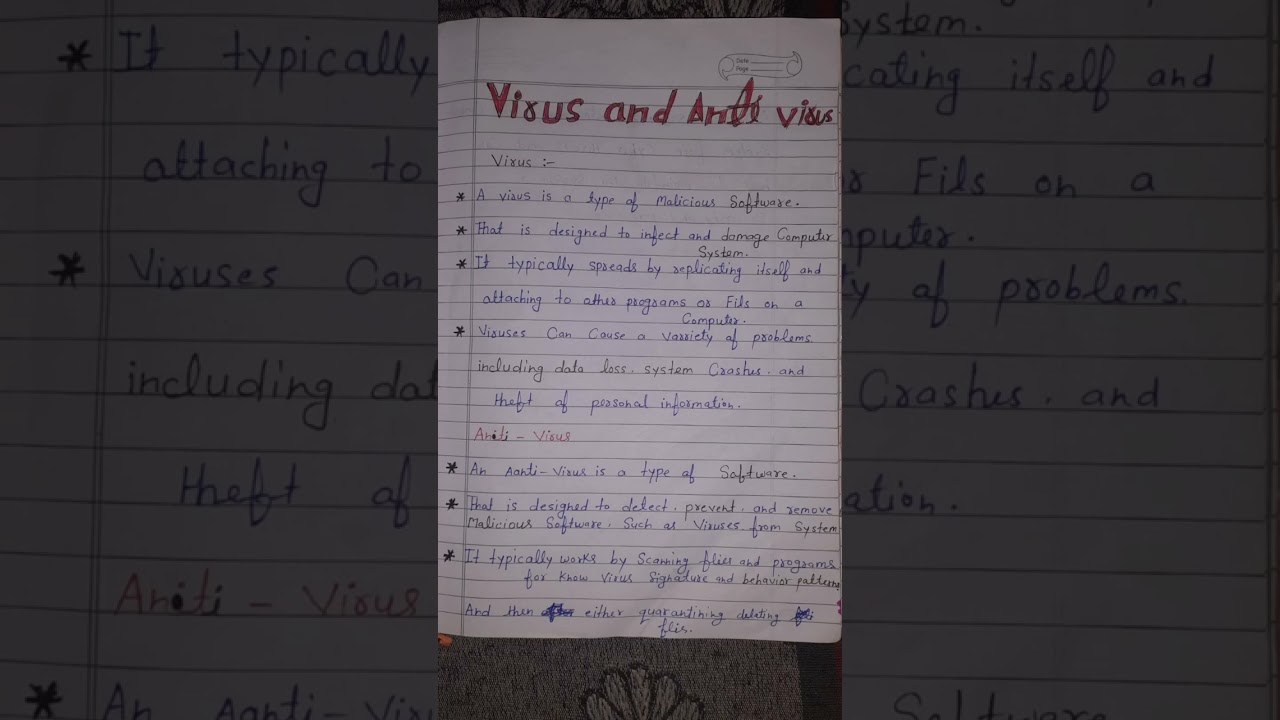 Date:
Page
Virus and Anti virus
Virus :-
* A virus is a type of Malicious Software.
* That is designed to infect and damage Computer
System.
* It typically spreads by replicating itself and
attaching to other programs or Fils on a
Computer.
* Viruses Can Cause a varriety of problems.
including data loss. system Crashus. and
theft of personal information.
Aniti - Virus
* An Aanti-Virus is a type of Software.
* That is designed to detect. prevent. and remove
Malicious Software. Such as Viruses from System
* It typically works by Scanning flies and programs
for know Virus Signature and behavior patterns
And then either quarantining deleting
flis.